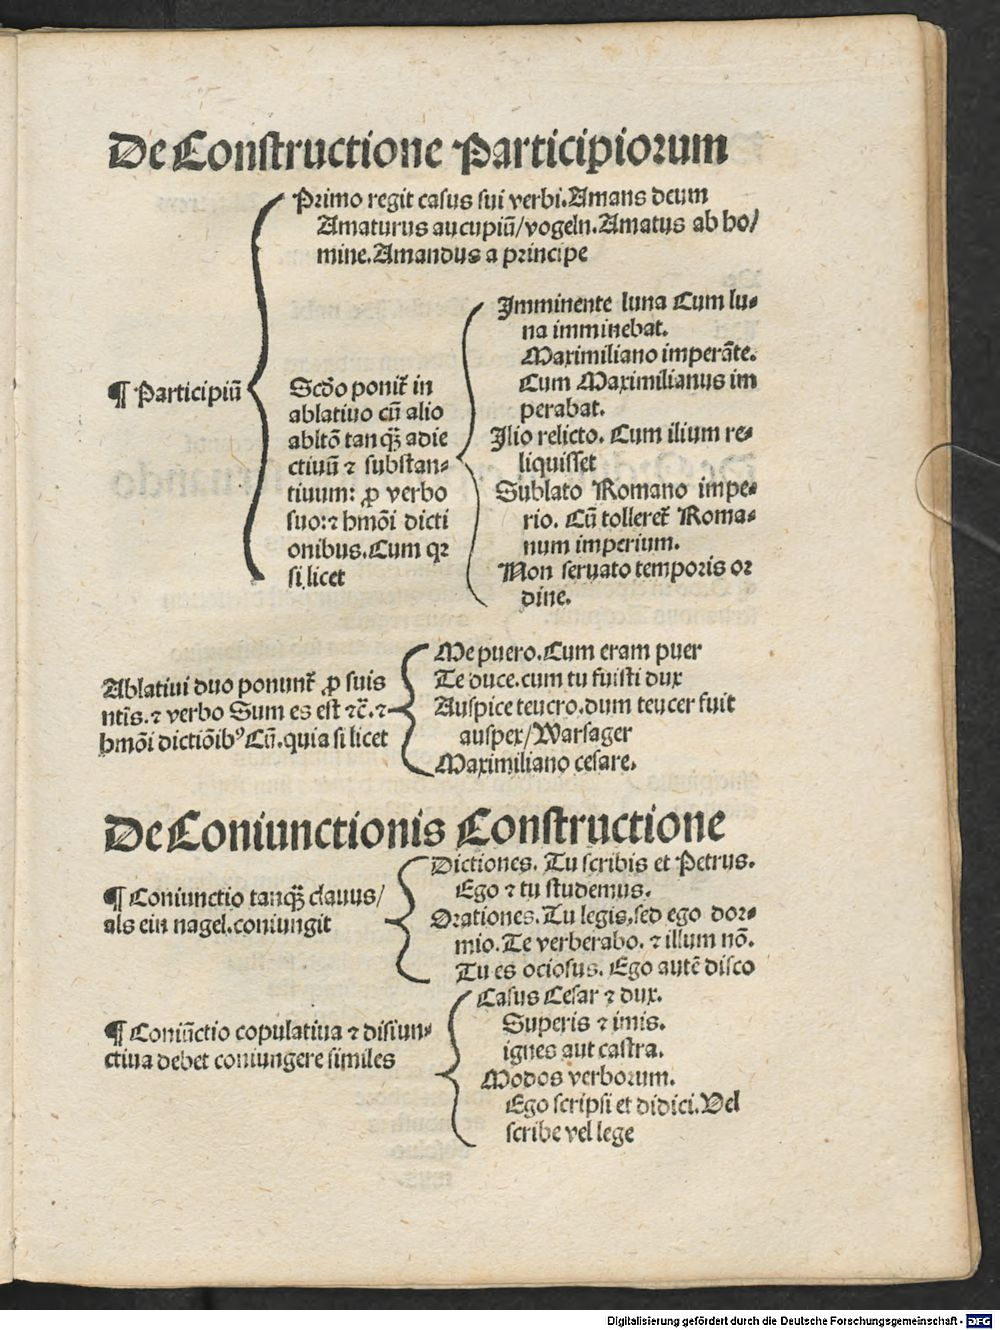 De Constructione Participiorum
Primo regit casus sui verbi. Amans deum
Amaturus aucupiū/vogeln. Amatus ab ho/
mine. Amandus a principe
¶ Participiū
Scd̄o ponit̄ in
ablatiuo cū alio
abltō tanq̄ȝ adie
ctiuū ⁊ substan⸗
tiuum: ꝓ verbo
suo: ⁊ hmōi dicti
onibus. Cum qꝛ
si, licet
Imminente luna Cum lu⸗
na imminebat.
Maximiliano imperāte.
Cum Maximilianus im
perabat.
Ilio relicto. Cum ilium re⸗
liquisset
Sublato Romano impe⸗
rio. Cū tolleret̄ Roma⸗
num imperium.
Non seruato temporis or
dine.
Ablatiui duo ponunt̄ ꝓ suis
ntīs. ⁊ verbo Sum es est ⁊c̄. ⁊
hmōi dictiōibꝰ Cū. quia si licet
Me puero. Cum eram puer
Te duce. cum tu fuisti dux
Auspice teucro. dum teucer fuit
auspex/Warsager
Maximiliano cesare.
De Coniunctionis Constructione
¶ Coniunctio tanq̄ȝ clauus/
als ein nagel. coniungit
Dictiones. Tu scribis et Petrus.
Ego ⁊ tu studemus.
Orationes. Tu legis, sed ego dor⸗
mio. Te verberabo. ⁊ illum nō.
Tu es ociosus. Ego autē disco
¶ Coniūctio copulatiua ⁊ disiun⸗
ctiua debet coniungere similes
Casus Cesar ⁊ dux.
Superis ⁊ imis.
ignes aut castra.
Modos verborum.
Ego scripsi et didici. Vel
scribe vel lege
Digitalisierung gefördert durch die Deutsche Forschungsgemeinschaft - DFG